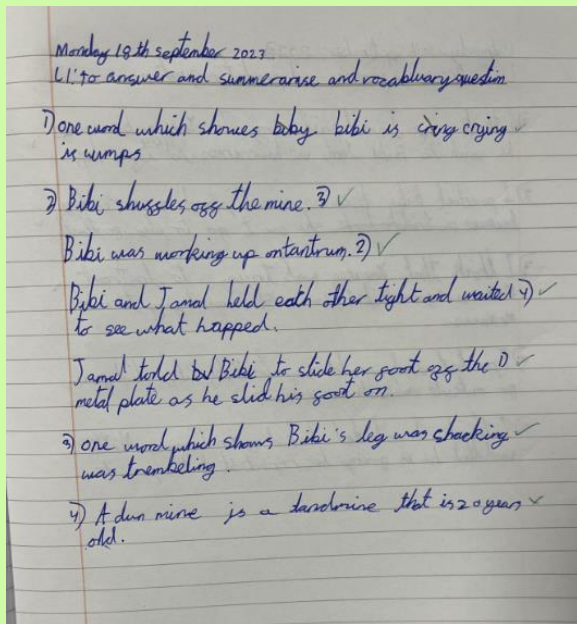 Monday 18th september 2023
LI: to answer and summerarise and vocabluary questin
1) one word which showes baby bibi is cring crying
is wumps
2) Bibi shuffles off the mine. 3)
Bibi was working up ontantrum. 2)
Bibi and Jamal held eath other tight and waited 4)
to see what happed.
Jamal told Bibi to slide her foot off the 1)
metal plate as he slid his foot on.
3) one word which shows Bibi's leg was shacking
was trembeling.
4) A dun mine is a landmine that is 20 years
old.